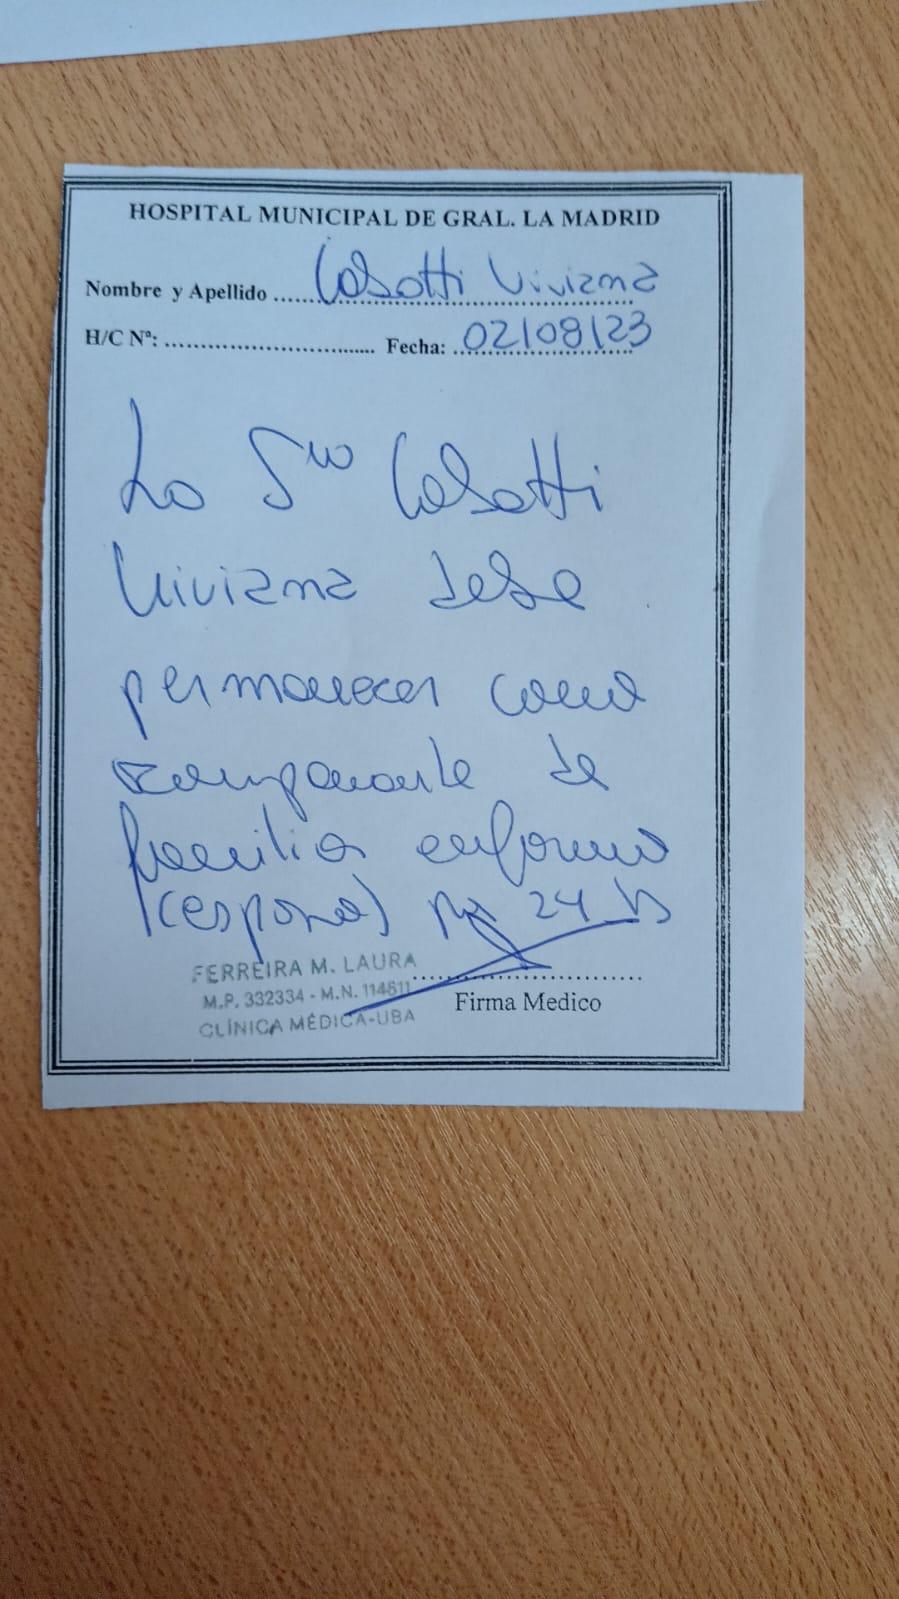 HOSPITAL MUNICIPAL DE GRAL. LA MADRID
Nombre y Apellido ..... Casotti Viviana
H/C Nº: ............................... Fecha: 02/08/23
La Sra Casotti
Viviana debe
permanecer como
acompañante de
familiar enfermo
(esposo) por 24 hs
FERREIRA M. LAURA
M.P. 332334 - M.N. 114811
CLÍNICA MÉDICA-UBA
Firma Medico